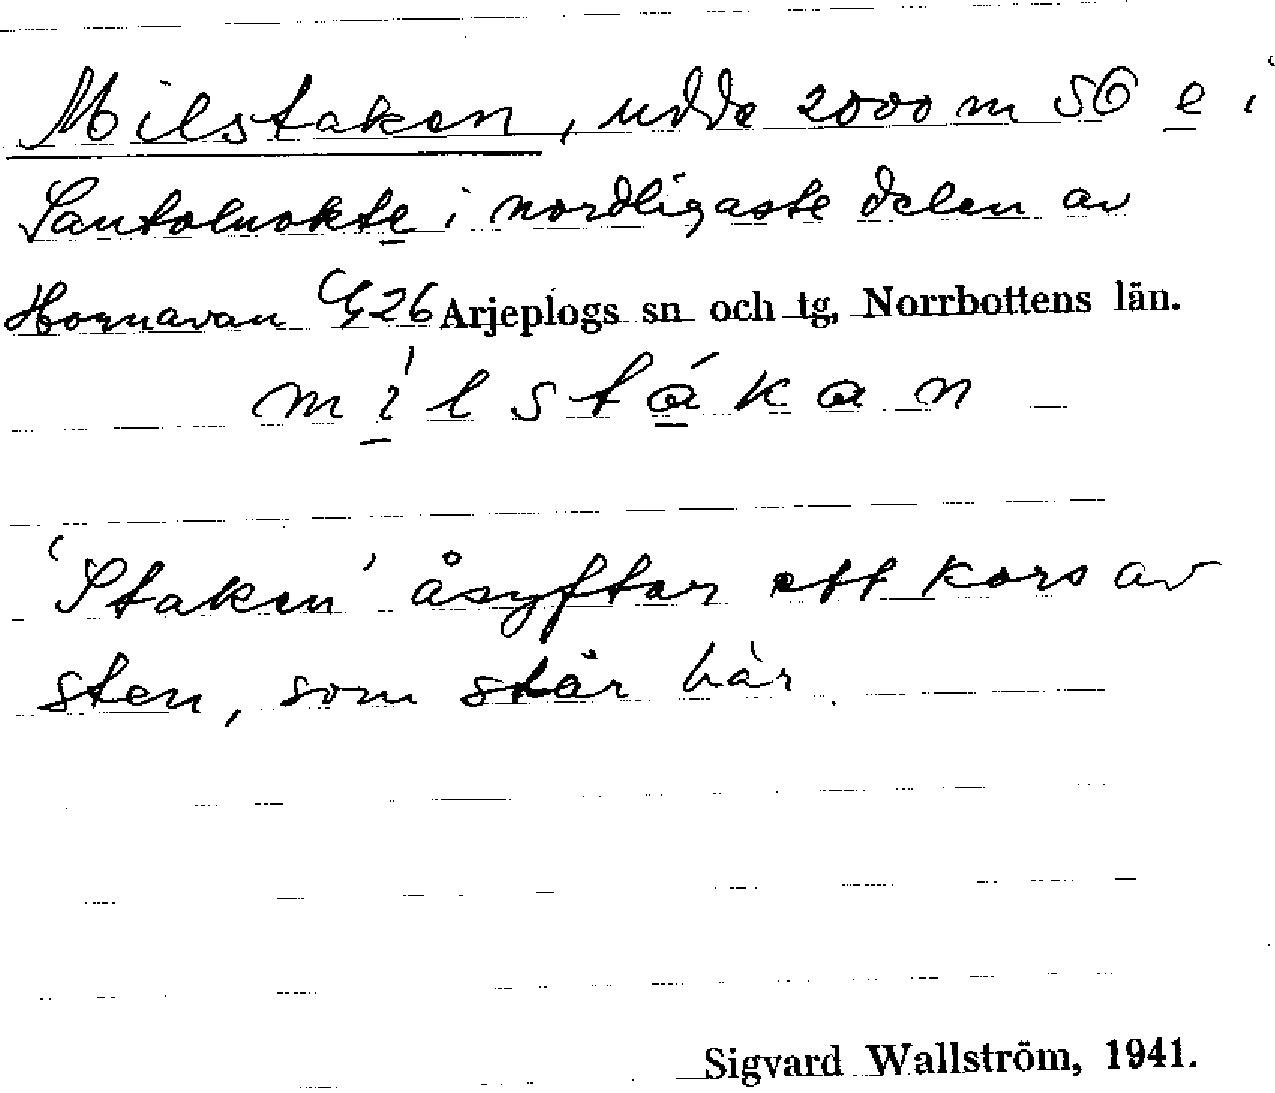 Milstaken, udde 2000 m SO e i
Santoluokte i nordligaste delen av
Hornavan G26 Arjeplogs sn och tg, Norrbottens län.
mi̱lstá̱kan
'Staken' åsyftar ett kors av
sten, som står här.
Sigvard Wallström, 1941.